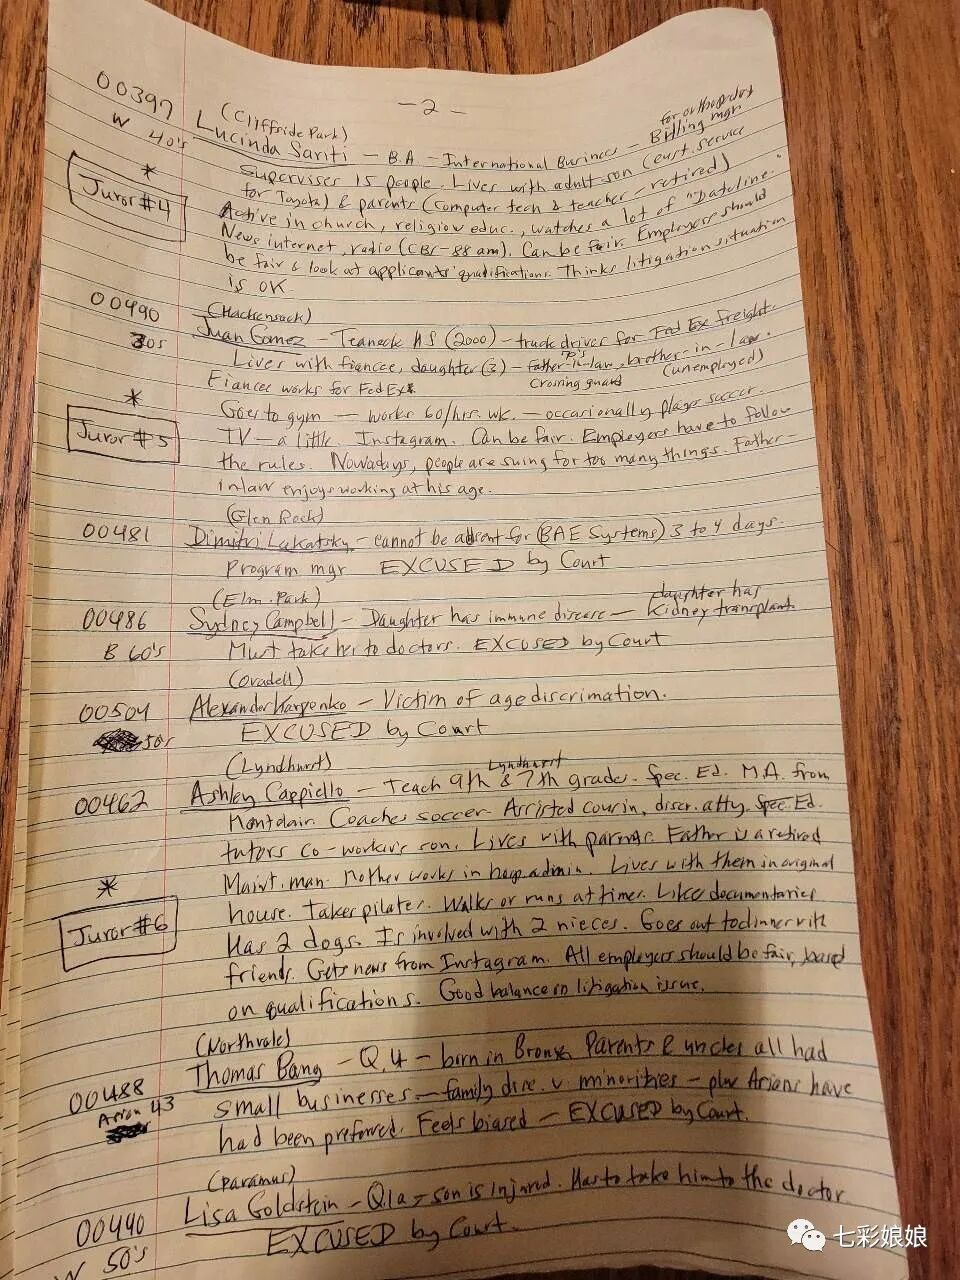 - 2 -
00397 (Cliffside Park) for orthopedist
W 40's Lucinda Sariti - B.A - International Business - Billing mgr
Supervises 15 people. Lives with adult son (cust. service
* for Toyota) & parents (computer tech & teacher - retired)
Juror #4 Active in church, religion educ., watches a lot of "Dateline.
News internet, radio (CBS - 88 am). Can be fair. Employers should
be fair & look at applicants' qualifications. Thinks litigation situation
is OK
00490 (Hackensack)
30s Juan Gomez - Teaneck HS (2000) - truck driver for Fed Ex freight.
Lives with fiancee, daughter (3) - father-in-law, brother-in-law.
Fiancee works for FedEx. Crossing guard (unemployed)
* Goes to gym - works 60/hrs. wk. - occasionally plays soccer.
Juror #5 TV - a little. Instagram. Can be fair. Employers have to follow
the rules. Nowadays, people are suing for too many things. Father-
in law enjoys working at his age.
(Glen Rock)
00481 Dimitri Lakatsky - cannot be absent for (BAE Systems) 3 to 4 days.
Program mgr EXCUSED by Court
(Elm. Park) daughter has
00486 Sydney Campbell - Daughter has immune disease - kidney transplant.
B 60's Must take her to doctors. EXCUSED by Court
(Oradell)
00504 Alexander Karpenko - Victim of age discrimation.
50s EXCUSED by Court
(Lyndhurst) Lyndhurst
00462 Ashley Cappiello - Teach 9th & 7th grades. Spec. Ed. M.A. from
Montclair. Coaches soccer. Assisted cousin, discr. atty. Spec. Ed.
tutors co-worker's son. Lives with parents. Father is a retired
* Maint. man. Mother works in hosp. admin. Lives with them in original
Juror #6 house. Takes pilates. Walks or runs at times. Likes documentaries
Has 2 dogs. Is involved with 2 nieces. Goes out to dinner with
friends. Gets news from Instagram. All employers should be fair, based
on qualifications. Good balance on litigation issue.
(Northvale)
00488 Thomas Bang - Q.4 - born in Bronx. Parents & uncles all had
Asian 43 small businesses - family disc. v. minorities - plus Asians have
had been preferred. Feels biased - EXCUSED by Court.
(Paramus)
00440 Lisa Goldstein - Q1a - son is injured. Has to take him to the doctor
W 50's EXCUSED by Court.
七彩娘娘